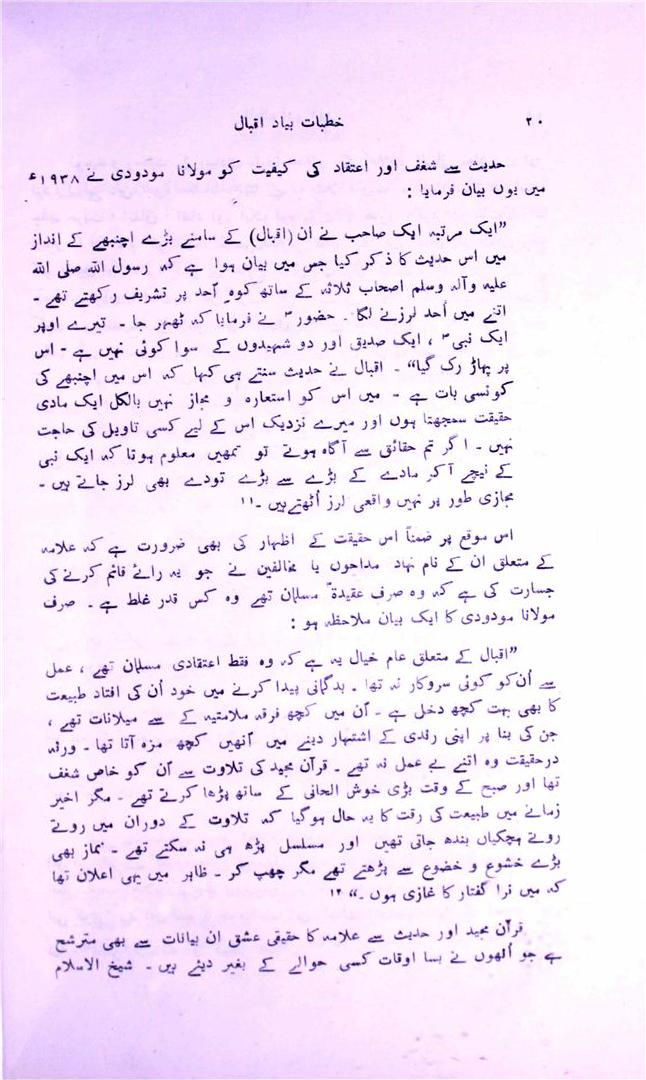 ۲۰
خطبات بیاد اقبال
حدیث سے شغف اور اعتقاد کی کیفیت کو مولانا مودودی نے ۱۹۳۸ء
میں یوں بیان فرمایا :
”ایک مرتبہ ایک صاحب نے ان (اقبال) کے سامنے بڑے اچنبھے کے انداز
میں اس حدیث کا ذکر کیا جس میں بیان ہوا ہے کہ رسول اللہ صلی اللہ
علیہ وآلہ وسلم اصحاب ثلاثہ کے ساتھ کوہِ اُحد پر تشریف رکھتے تھے ۔
اتنے میں اُحد لرزنے لگا ۔ حضورؐ نے فرمایا کہ ٹھہر جا ۔ تیرے اوپر
ایک نبیؐ ، ایک صدیق اور دو شہیدوں کے سوا کوئی نہیں ہے ۔ اس
پر پہاڑ رک گیا“ ۔ اقبال نے حدیث سنتے ہی کہا کہ اس میں اچنبھے کی
کونسی بات ہے ۔ میں اس کو استعارہ و مجاز نہیں بالکل ایک مادی
حقیقت سمجھتا ہوں اور میرے نزدیک اس کے لیے کسی تاویل کی حاجت
نہیں ۔ اگر تم حقائق سے آگاہ ہوتے تو تمھیں معلوم ہوتا کہ ایک نبی
کے نیچے آ کر مادے کے بڑے سے بڑے تودے بھی لرز جاتے ہیں ۔
مجازی طور پر نہیں واقعی لرز اُٹھتے ہیں ۔۱۱
اس موقع پر ضمناً اس حقیقت کے اظہار کی بھی ضرورت ہے کہ علامہ
کے متعلق ان کے نام نہاد مداحوں یا مخالفین نے جو یہ رائے قائم کرنے کی
جسارت کی ہے کہ وہ صرف عقیدۃً مسلمان تھے وہ کس قدر غلط ہے ۔ صرف
مولانا مودودی کا ایک بیان ملاحظہ ہو :
”اقبال کے متعلق عام خیال یہ ہے کہ وہ فقط اعتقادی مسلمان تھے ، عمل
سے اُن کو کوئی سروکار نہ تھا ۔ بدگمانی پیدا کرنے میں خود اُن کی افتاد طبیعت
کا بھی بہت کچھ دخل ہے ۔ اُن میں کچھ فرقہ ملامتیہ کے سے میلانات تھے ،
جن کی بنا پر اپنی رندی کے اشتہار دینے میں انھیں کچھ مزہ آتا تھا ۔ ورنہ
درحقیقت وہ اتنے بے عمل نہ تھے ۔ قرآن مجید کی تلاوت سے اُن کو خاص شغف
تھا اور صبح کے وقت بڑی خوش الحانی کے ساتھ پڑھا کرتے تھے ۔ مگر اخیر
زمانے میں طبیعت کی رقت کا یہ حال ہوگیا کہ تلاوت کے دوران میں روتے
روتے ہچکیاں بندھ جاتی تھیں اور مسلسل پڑھ ہی نہ سکتے تھے ۔ نماز بھی
بڑے خشوع و خضوع سے پڑھتے تھے مگر چھپ کر ۔ ظاہر میں یہی اعلان تھا
کہ میں نرا گفتار کا غازی ہوں ۔“ ۱۲
قرآن مجید اور حدیث سے علامہ کا حقیقی عشق ان بیانات سے بھی مترشح
ہے جو اُنھوں نے بسا اوقات کسی حوالے کے بغیر دیئے ہیں ۔ شیخ الاسلام